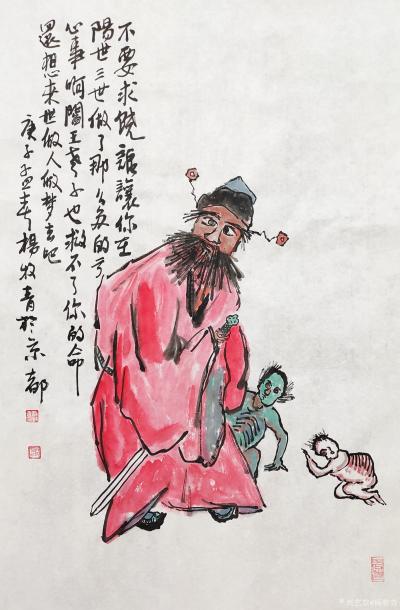 不要求饶誰讓你在
陽世三世做了那么多的亏
心事啊閻王老子也救不了你的命
還想来世做人做梦去吧
庚子孟春楊牧青於京都